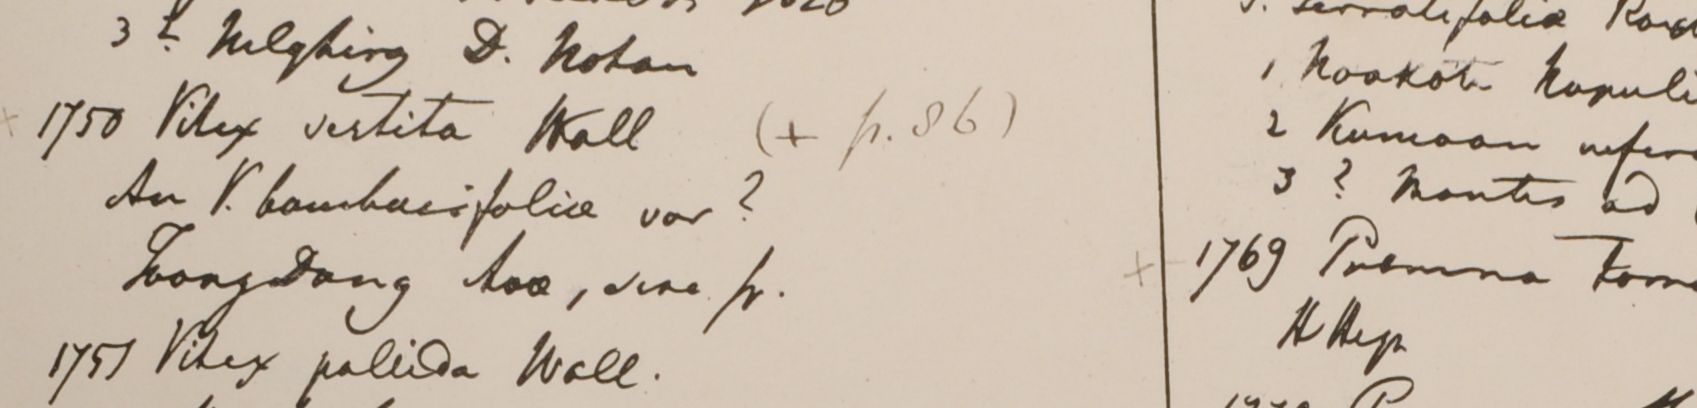 3 ? Nelghiry D. Notan
1750 Vitex vestita Wall (+ p. 86)
An V. bambusifoliæ var?
Toong Dong Avæ, sine fr.
1751 Vitex pallida Wall.
serratifolia Roxb
1 Noakote Napuli
2 Kumaon
3 ? Montes ad
1769 Premna
H Heyn